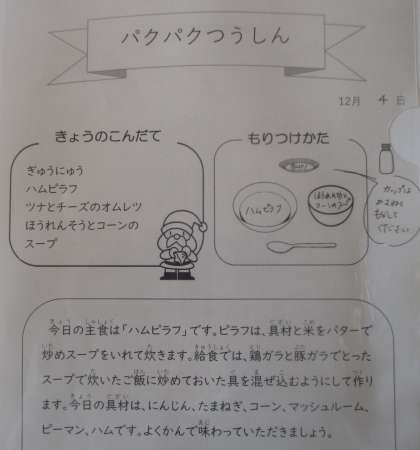 パクパクつうしん
12月 4日
きょうのこんだて
ぎゅうにゅう
ハムピラフ
ツナとチーズのオムレツ
ほうれんそうとコーンの
スープ
もりつけかた
ハムピラフ
カップは
かさねて
もどして
ください
今日の主食は「ハムピラフ」です。ピラフは、具材と米をバターで
炒めスープをいれて炊きます。給食では、鶏ガラと豚ガラでとった
スープで炊いたご飯に炒めておいた具を混ぜ込むようにして作り
ます。今日の具材は、にんじん、たまねぎ、コーン、マッシュルーム、
ピーマン、ハムです。よくかんで味わっていただきましょう。